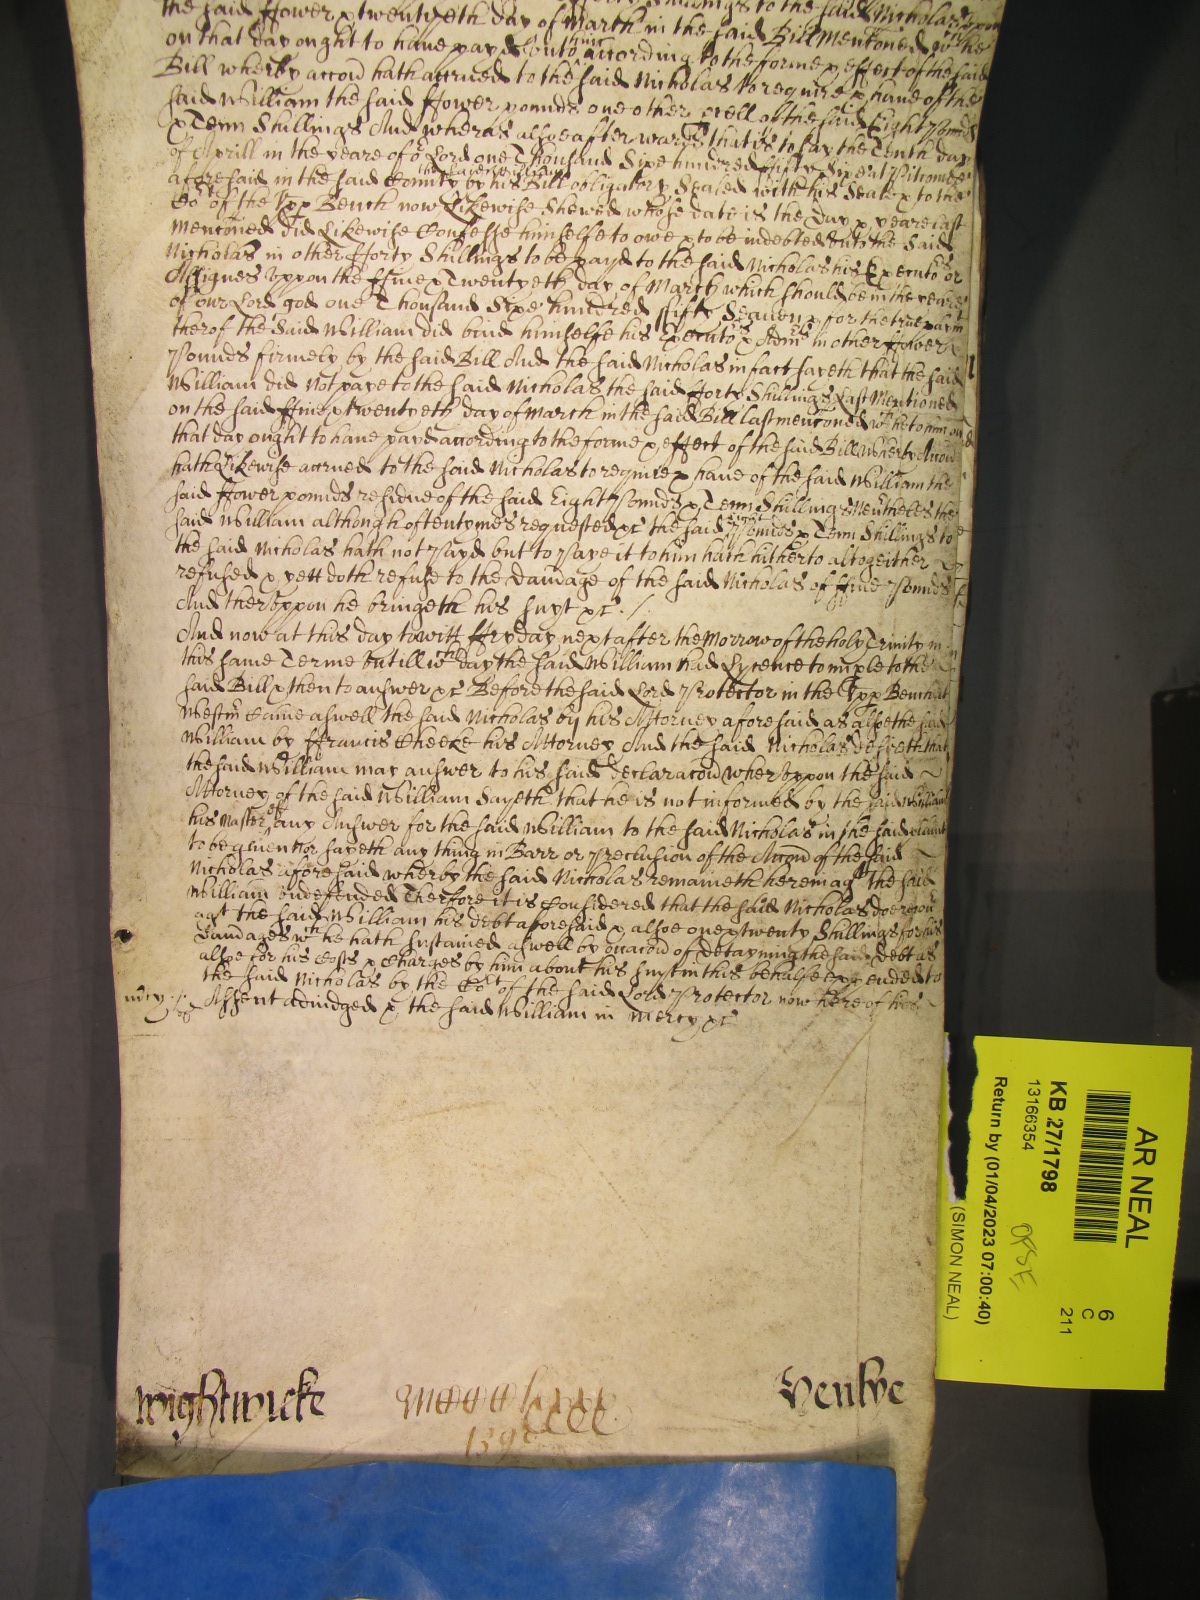 the said ffower & twentyeth day of March in the said Bill Mentoned wch he
on that day ought to have payd unto him according to the forme & effect of the said
Bill wherby accon hath accrued to the said Nicholas to require & have of the
said William the said ffower pounds one other pcell of the said Eight Pounds
& Tenn Shillings And wheras alsoe afterwards that is to say the Tenth day
of Aprill in the yeare of or Lord one Thousand Sixe hundred ffifty Sixe at
aforesaid in the said County the said William by his Bill obligatory Sealed with his Seale & to the
Cort of the Upp Bench now Likewise Shewed whose date is the day & yeare last
mentoned did Likewise Confesse himselfe to owe & to be indebted unto the said
Nicholas in other fforty Shillings to be payd to the said Nicholas his Executors or
Assignes Uppon the ffive & Twentyeth day of March which should be in the yeare
of our Lord god one Thousand Sixe hundred ffifty Seaven & for the true paymt
therof the said William did bind himselfe his Executors & Admrs in other ffower
Pounds firmely by the said Bill And the said Nicholas in fact sayeth that the said
William did Not paye to the said Nicholas the said fforty Shillings Last Mentioned
on the said ffive & twentyeth day of March in the said Bill last mentoned wch he to him on
that day ought to have payd according to the forme & effect of the said Bill Wherby Accon
hath Likewise accrued to the said Nicholas to require & have of the said William the
said ffower pounds residue of the said Eight Pounds & Tenn Shillings Neverthelesse the
said William although oftentymes requested &c the said Eight Pounds & Tenn Shillings to
the said Nicholas hath not Payd but to Paye it to him hath hitherto altogeither
refused & yett doth refuse to the Damage of the said Nicholas of ffive Pounds
And theruppon he bringeth his suyt &c
And now at this day to witt ffryday next after the Morrow of the holy Trinity in
this same Terme untill wch day the said William had Lycence to imple to the
said Bill & then to answer &c Before the said Lord Protector in the Upp Bench at
Westmr Came aswell the said Nicholas by his Attorney aforesaid as alsoe the said
William by ffrancis Cheeke his Attorney And the said Nicholas desireth that
the said William may answer to his said declaracon wheruppon the said
Attorney of the said William Sayeth that he is not informed by the said William
his Master of any Answer for the said William to the said Nicholas in the said plaint
to be given nor sayeth any thing in Barr or Preclusion of the Accon of the said
Nicholas aforesaid wherby the said Nicholas remaineth herein agt the said
William undefended Therfore it is Considered that the said Nicholas doe recovr
agt the said William his debt aforesaid & alsoe one & twenty Shillings for his
Damages wch he hath sustained aswell by occacon of detayning the said Debt as
alsoe for his Costs & Charges by him about his suyt in this behalfe expended to
the said Nicholas by the Cort of the said Lord Protector now here of his
mrcy
Assent adiudged & the said William in Mercy &c
Wightwicke
Venlve
AR NEAL
KB 27/1798
13166354
Return by (01/04/2023 07:00:40)
(SIMON NEAL)
6
C
211